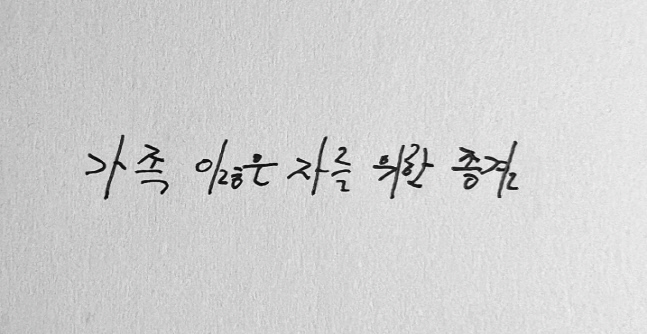 가족 잃은 자를 위한 증거